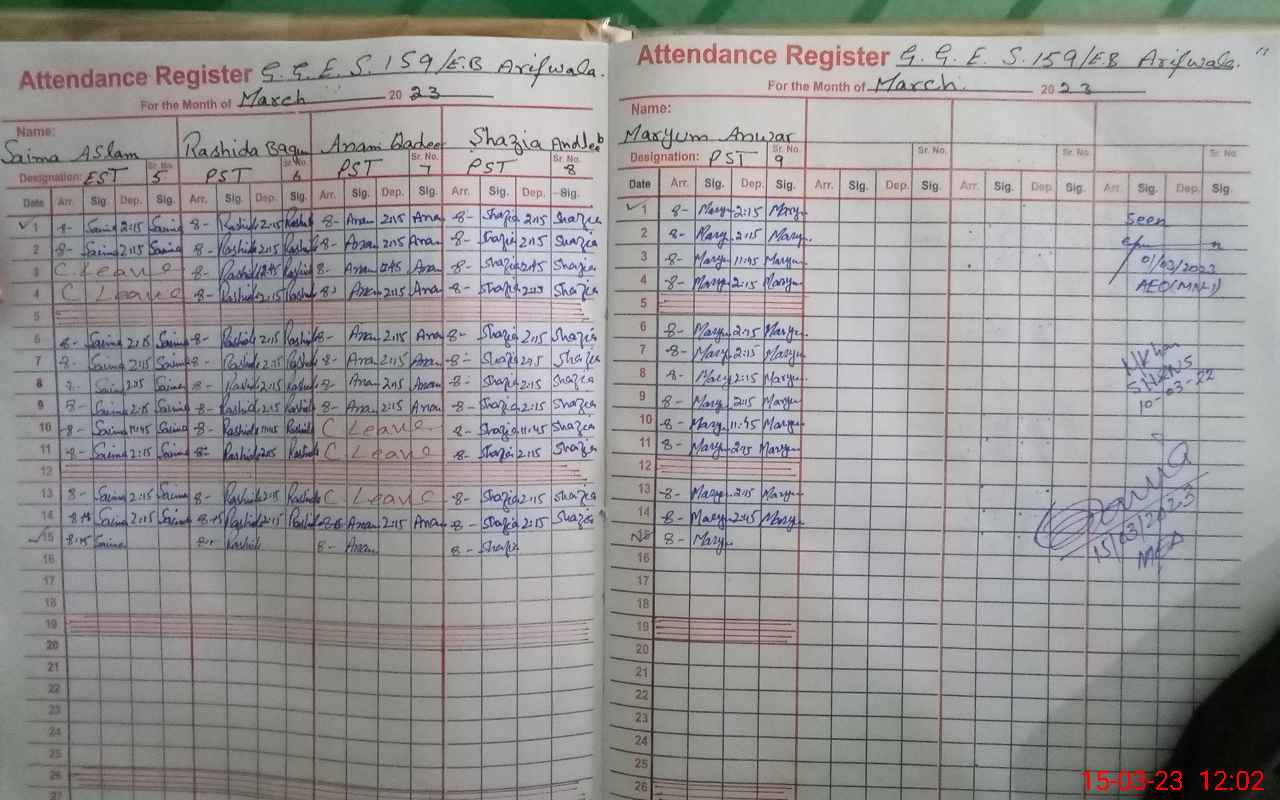 Attendance Register G. G. E. S. 159/E.B Arifwala.
For the Month of March 2023
Name:
Saima Aslam Rashida Anam Qadeer Shazia Andleeb
Sr. No. Sr. No. Sr. No. Sr. No.
Designation: EST 5 PST 6 PST 7 PST 8
Date Arr. Sig. Dep. Sig. Arr. Sig. Dep. Sig. Arr. Sig. Dep. Sig. Arr. Sig. Dep. Sig.
1 8- Saima 2:15 Saima 8- Rashida 2:15 Rashid 8- Anam 2:15 Ana 8- Shazia 2:15 Shazia
2 8- Saima 2:15 Saima 8- Rashida 2:15 Rashid 8- Anam 2:15 Anam 8- Shazia 2:15 Shazia
3 C Leave 8- Rashida Rashid 8- Anam Ana 8- Shazia Shazia
4 C Leave 8- Rashid 2:15 Rashid 8- Anam 2:15 Ana 8- Shazia 2:15 Shazia
5
6 8- Saima 2:15 Saima 8- Rashid 2:15 Rashid 8- Anam 2:15 Ana 8- Shazia 2:15 Shazia
7 8- Saima 2:15 Saima 8- Rashid 2:15 Rashid 8- Ana 2:15 Anam 8- Shazia 2:15 Shazia
8 8- Saima 2:15 Saima 8- Rashid 2:15 Rashid 8- Anam 2:15 Anam 8- Shazia 2:15 Shazia
9 8- Saima 2:15 Saima 8- Rashid 2:15 Rashid 8- Ana 2:15 Anam 8- Shazia 2:15 Shazia
10 8- Saima 11:45 Saima 8- Rashid 11:45 Rashid C Leave 8- Shazia 11:45 Shazia
11 8- Saima 2:15 Saima 8- Rashid 2:15 Rashid C Leave 8- Shazia 2:15 Shazia
12
13 8- Saima 2:15 Saima 8- Rashida 2:15 Rashid C Leave 8- Shazia 2:15 Shazia
14 8:15 Saima 2:15 Saima 8:15 Rashid 2:15 Rashid Anam 2:15 Anam 8- Shazia 2:15 Shazia
15 8:15 Saima Rashid 8- Anam 8- Shazia
16
17
18
19
20
21
22
23
24
25
26
27
Attendance Register G. G. E. S. 159/E.B Arifwala.
For the Month of March. 2023
Name:
Maryum Anwar
Sr. No. Sr. No. Sr. No. Sr. No.
Designation: PST 9
Date Arr. Sig. Dep. Sig. Arr. Sig. Dep. Sig. Arr. Sig. Dep. Sig. Arr. Sig. Dep. Sig.
1 8- Mary 2:15 Mary
2 8- Mary 2:15 Mary
3 8- Mary 11:45 Maryu
4 8- Mary 2:15 Maryu
5
6 8- Mary 2:15 Maryu
7 8- Mary 2:15 Maryu
8 8- Mary 2:15 Maryu
9 8- Mary 2:15 Maryu
10 8- Mary 11:45 Maryu
11 8- Mary 2:15 Maryu
12
13 8- Mary 2:15 Maryu
14 8- Mary 2:15 Maryu
15 8- Mary
16
17
18
19
20
21
22
23
24
25
26
Seen
01/03/2023
10-03-22
15/03/2023
15-03-23 12:02